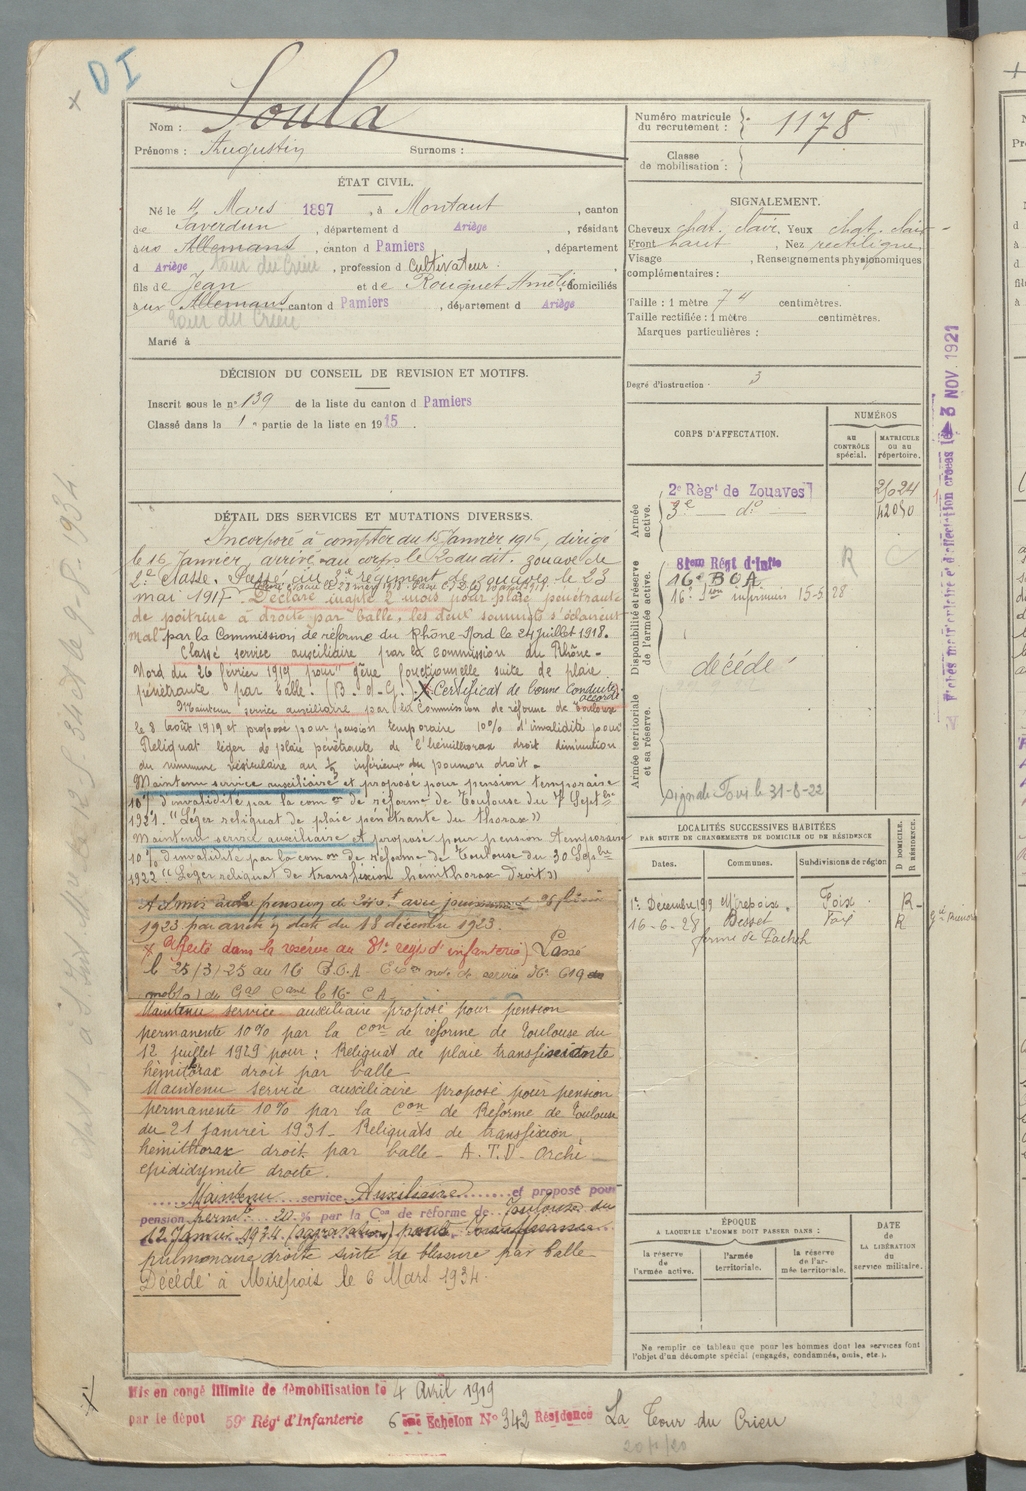 DI
Nom : Soula
Prénoms : Augustin Surnoms :
Numéro matricule du recrutement : 1178
Classe de mobilisation :
ÉTAT CIVIL.
Né le 4 Mars 1897, à Montaut, canton
de Saverdun, département d Ariège, résidant
aux Allemans, canton d Pamiers, département
d Ariège Tour du Crieu, profession d Cultivateur.
fils de Jean et de Rouquet Amélie, domiciliés
aux Allemans, canton d Pamiers, département d Ariège
Tour du Crieu
Marié à
SIGNALEMENT.
Cheveux chat. clair. Yeux chat. clair
Front haut, Nez rectiligne
Visage , Renseignements physionomiques
complémentaires :
Taille : 1 mètre 74 centimètres.
Taille rectifiée : 1 mètre centimètres.
Marques particulières :
Degré d'instruction 3
DÉCISION DU CONSEIL DE REVISION ET MOTIFS.
Inscrit sous le n° 139 de la liste du canton d Pamiers
Classé dans la 1e partie de la liste en 1915.
DÉTAIL DES SERVICES ET MUTATIONS DIVERSES.
Incorporé à compter du 15 Janvier 1916, dirigé
le 16 Janvier, arrivé au corps le 20 du dit. zouave de
2e classe. Passé au 3e régiment de zouaves le 23
mai 1917. Déclaré inapte 2 mois pour plaie pénétrante
de poitrine à droite par balle, les deux sommets s'éclairent
mal par la Commission de réforme du Rhône-Nord le 24 juillet 1918.
Classé service auxiliaire par la commission du Rhône-
Nord du 26 février 1919 pour gêne fonctionnelle suite de plaie
pénétrante par balle. (B.D.G.). X Certificat de bonne conduite accordé
Maintenu service auxiliaire par la Commission de réforme de Toulouse
le 8 Août 1919 et proposé pour pension temporaire 10% d'invalidité pour
Reliquat léger de plaie pénétrante de l'hémithorax droit diminution
du murmure vésiculaire au 1/3 inférieur du poumon droit.
Maintenu service auxiliaire et proposé pour pension temporaire
10% d'invalidité par la com on de réforme de Toulouse du 7 Septbre
1921. "Léger reliquat de plaie pénétrante du thorax"
Maintenu service auxiliaire et proposé pour pension temporaire
10% d'invalidité par la com on de réforme de Toulouse du 30 Septbre
1922 "Léger reliquat de transfixion hémithorax droit"
1923 par arrêté du date du 18 décembre 1923.
X Affecté dans la réserve au 81e régt d'infanterie) Passé
le 25/3/25 au 16 B.O.A.
Maintenu service auxiliaire proposé pour pension
permanente 10% par la Con de réforme de Toulouse du
12 juillet 1929 pour : Reliquat de plaie
hémithorax droit par balle
Maintenu service auxiliaire proposé pour pension
permanente 10% par la Con de Réforme de Toulouse
du 21 janvier 1931. Reliquats de transfixion
hémithorax droit par balle - A.T.D. Orchi-
épididymite droite.
Maintenu service Auxiliaire et proposé pour
pension permte 20% par la Con de réforme de Toulouse du
12 Janvier 1934 (aggravation) pour Insuffisance
pulmonaire droite suite de blessure par balle
Décédé à Mirepoix le 6 Mars 1934.
CORPS D'AFFECTATION.
NUMÉROS
AU CONTRÔLE spécial.
MATRICULE OU AU répertoire.
Armée active.
2e Régt de Zouaves 21024
3e do 42050
Disponibilité et réserve de l'armée active.
81em Régt d'Inftie
16e BOA
16e Son infirmiers 15-5 28
décédé
R
Armée territoriale et sa réserve.
LOCALITÉS SUCCESSIVES HABITÉES
PAR SUITE DE CHANGEMENTS DE DOMICILE OU DE RÉSIDENCE
Dates. Communes. Subdivisions de région
D DOMICILE. R RÉSIDENCE.
1r Décembre 1919 Mirepoix. Foix R
16-6-28 Besset Foix R
ÉPOQUE
A LAQUELLE L'HOMME DOIT PASSER DANS :
la réserve de l'armée active.
l'armée territoriale.
la réserve de l'armée territoriale.
DATE de LA LIBÉRATION du service militaire.
Ne remplir ce tableau que pour les hommes dont les services font
l'objet d'un décompte spécial (engagés, condamnés, omis, etc.).
3 NOV. 1921
Mis en congé illimité de démobilisation le 4 Avril 1919
par le dépôt 59e Régt d'Infanterie 6eme Echelon N° 342 Résidence La Tour du Crieu